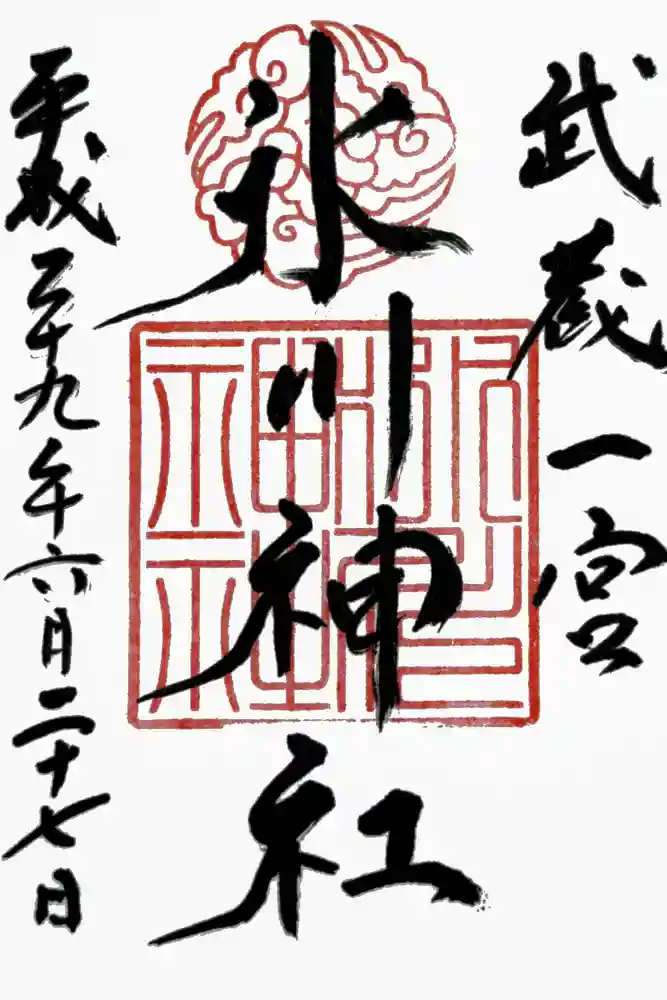 武蔵一宮
氷川神社
平成二十九年六月二十七日